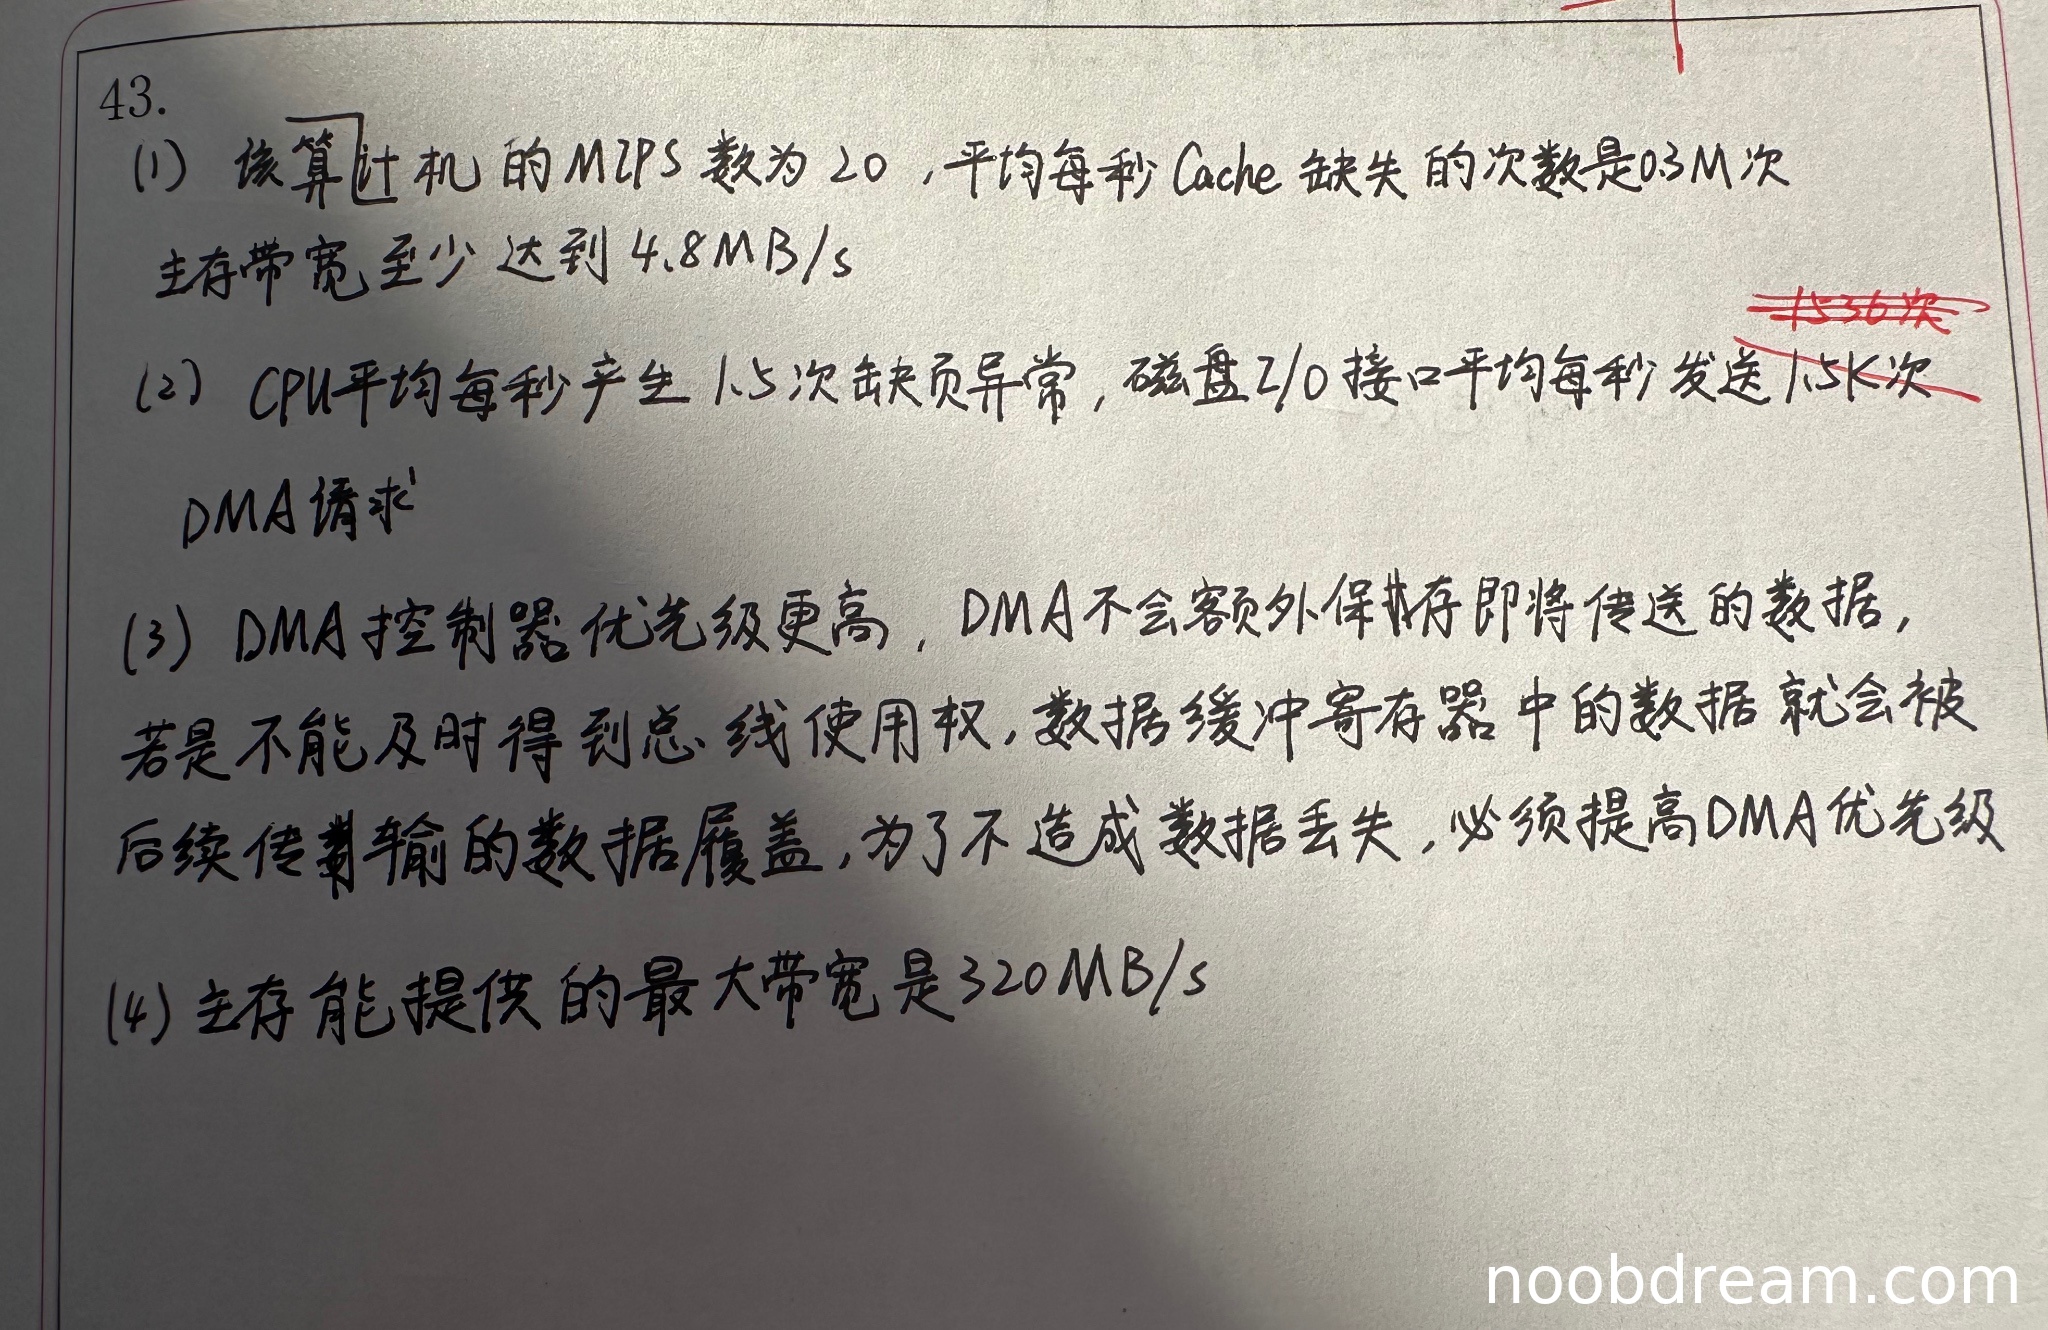 43.
(1) 该算计机的MIPS数为20，平均每秒Cache缺失的次数是0.3M次
主存带宽至少达到4.8MB/s
1536次
(2) CPU平均每秒产生1.5次缺页异常，磁盘I/O接口平均每秒发送1.5K次
DMA请求
(3) DMA控制器优先级更高，DMA不会额外保存即将传送的数据，
若是不能及时得到总线使用权，数据缓冲寄存器中的数据就会被
后续传输的数据履盖，为了不造成数据丢失，必须提高DMA优先级
(4) 主存能提供的最大带宽是320MB/s
noobdream.com